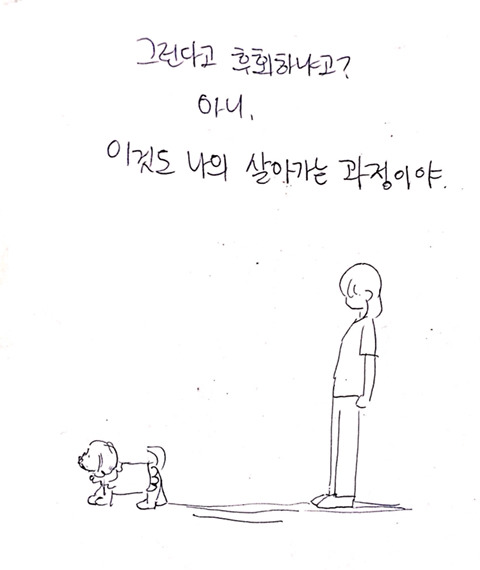 그런다고 후회하냐고?
아니,
이것도 나의 살아가는 과정이야.